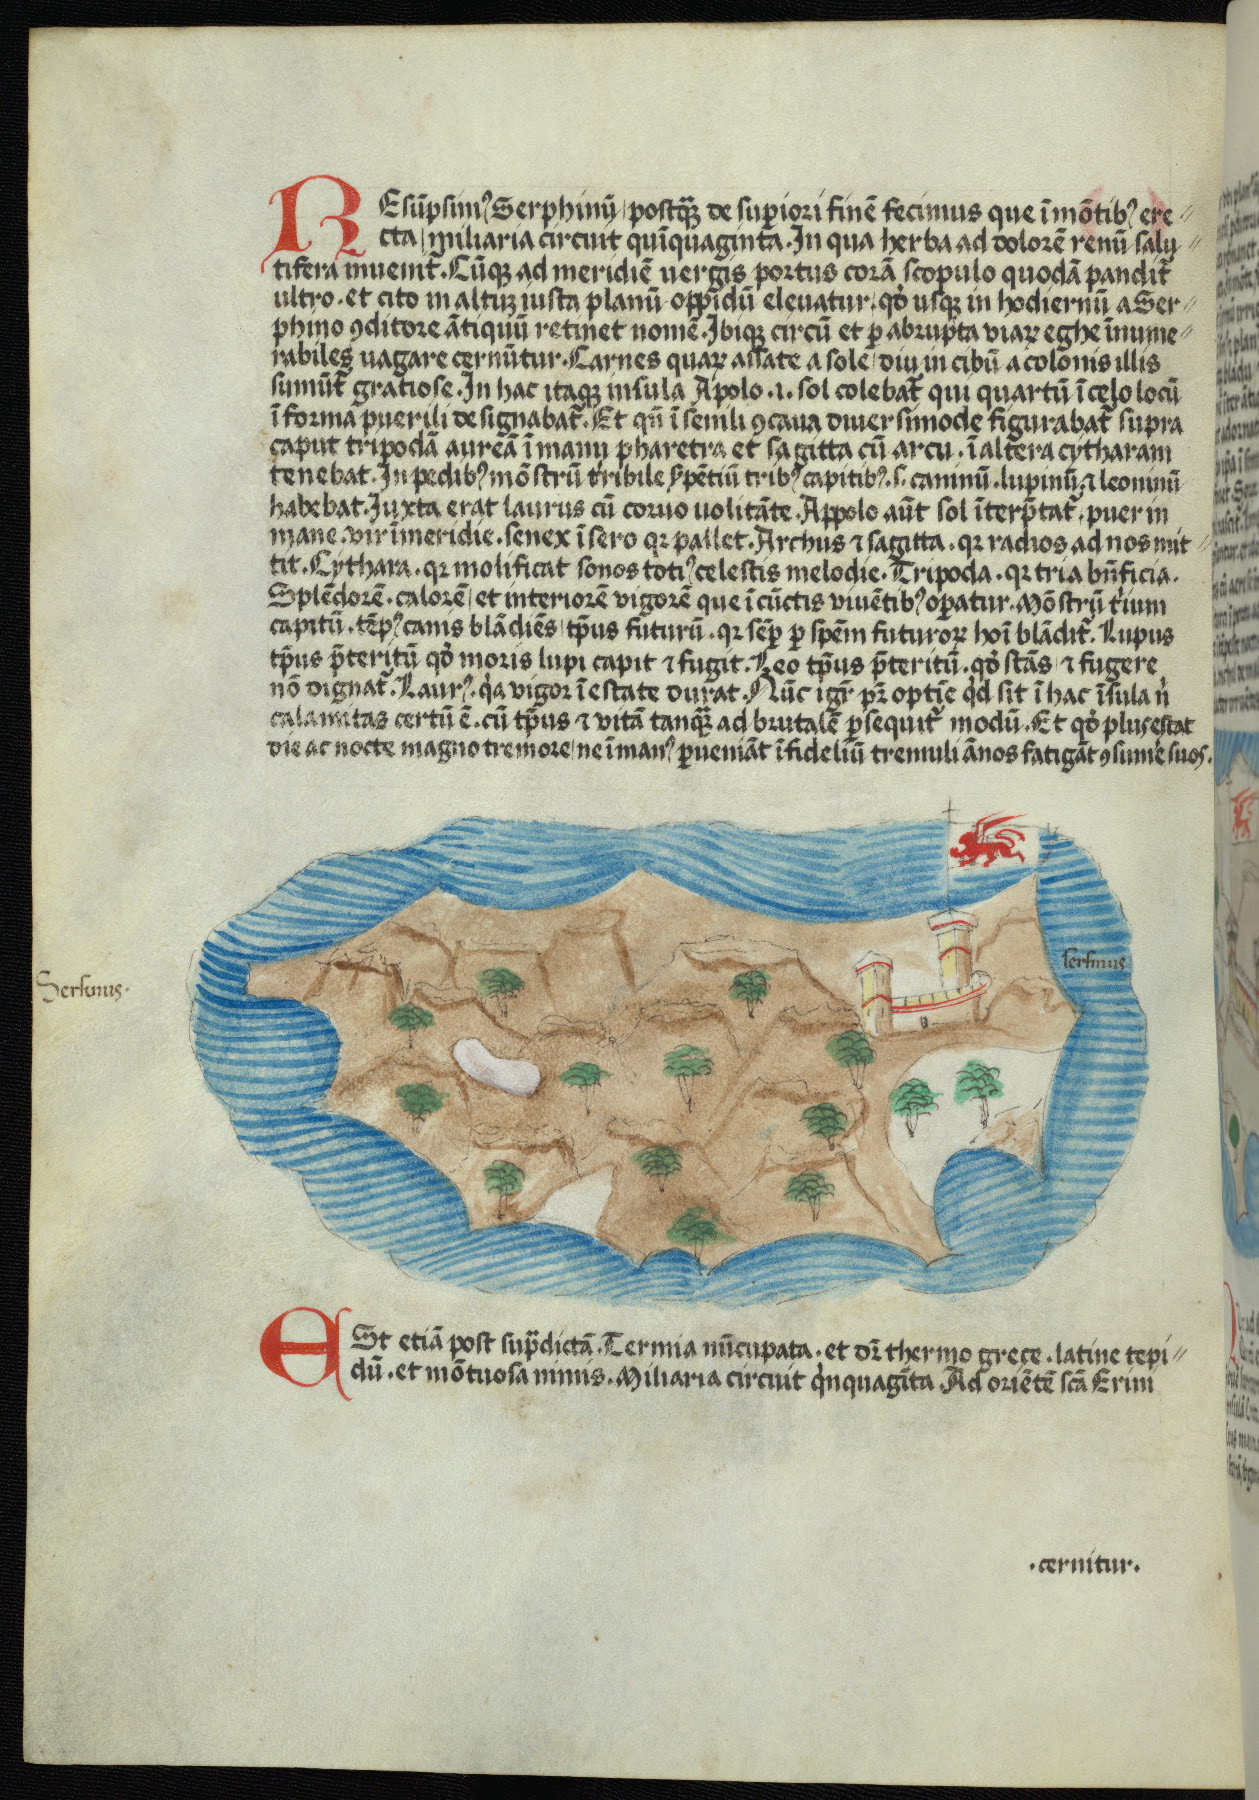 REsūpsim⁹ Serphinū postq̄ꝫ de superiori finē fecimus que ī mōtib⁹ ere〃
cta miliaria circuit quīquaginta. In qua herba ad dolorē renū salu〃
tifera īuenit᷑. Cūqꝫ ad meridiē uergis portus corā scopulo quodā pandit᷑
ultro. et cito in altuꝫ iusta planū oppidū eleuatur. qd̓ usqꝫ in hodiernū a Ser〃
phino ꝯditore ātiquū retinet nomē. Ibiqꝫ circū et p abrupta viaꝝ eghe īnume〃
rabiles uagare cernūtur. Carnes quaꝝ assate a sole diu in cibū a colonis illis
sumūt᷑ gratiose. In hac itaqꝫ insula Apolo .i. sol colebat᷑ qui quartū ī celo locū
ī forma puerili designabat᷑. Et qn̄ ī senili ꝯcaua diuersimode figurabat᷑ supra
caput tripodā aureā ī manu pharetra et sagitta cū arcu. ī altera cytharam
tenebat. In pedib⁹ mōstrū tribile spētiū trib⁹ capitib⁹ .s. caninū. lupinū. ⁊ leoninū
habebat. Juxta erat laurus cū coruo uolitāte. Appolo aūt sol īterp̄tat᷑. puer in
mane. vir ī meridie. senex ī sero qꝛ pallet. Archus ⁊ sagitta. qꝛ radios ad nos mit〃
tit. Cythara. qꝛ molificat sonos toti⁹ celestis melodie. Tripoda. qꝛ tria bn̄ficia.
Splēdorē. calorē et interiorē vigorē que ī cūctis viuētib⁹ opatur. Mōstrū trium
capitū. tēp⁹ canis blādiēs tp̄us futurū. qꝛ sēp p spēm futuroꝝ hoī blādit᷑. Lupus
tp̄us p̄teritū qd̓ moris lupi capit ⁊ fugit. Leo tp̄us p̄teritū. qd̓ stās ⁊ fugere
nō dignat᷑. Laur⁹. qa vigor ī estate durat. Nūc igr̄ pr̄ optīe qd sit ī hac īsula n̄
calamitas certū ē. cū tp̄us ⁊ vitā tanqꝫ ad brutalē psequit᷑ modū. Et qd̓ plus estat
die ac nocte magno tremore ne ī man⁹ pueniāt īfideliū tremuli ānos fatigāt ꝯsume suos.
Serfinus.
serfinus
ESt etiā post sup̄dictā. Termia nūcupata. et dr̄ thermo grece. latine tepi〃
dū. et mōtuosa nimis. Miliaria circuit qnquagīta Ad oriētē scā Erini
.cernitur.